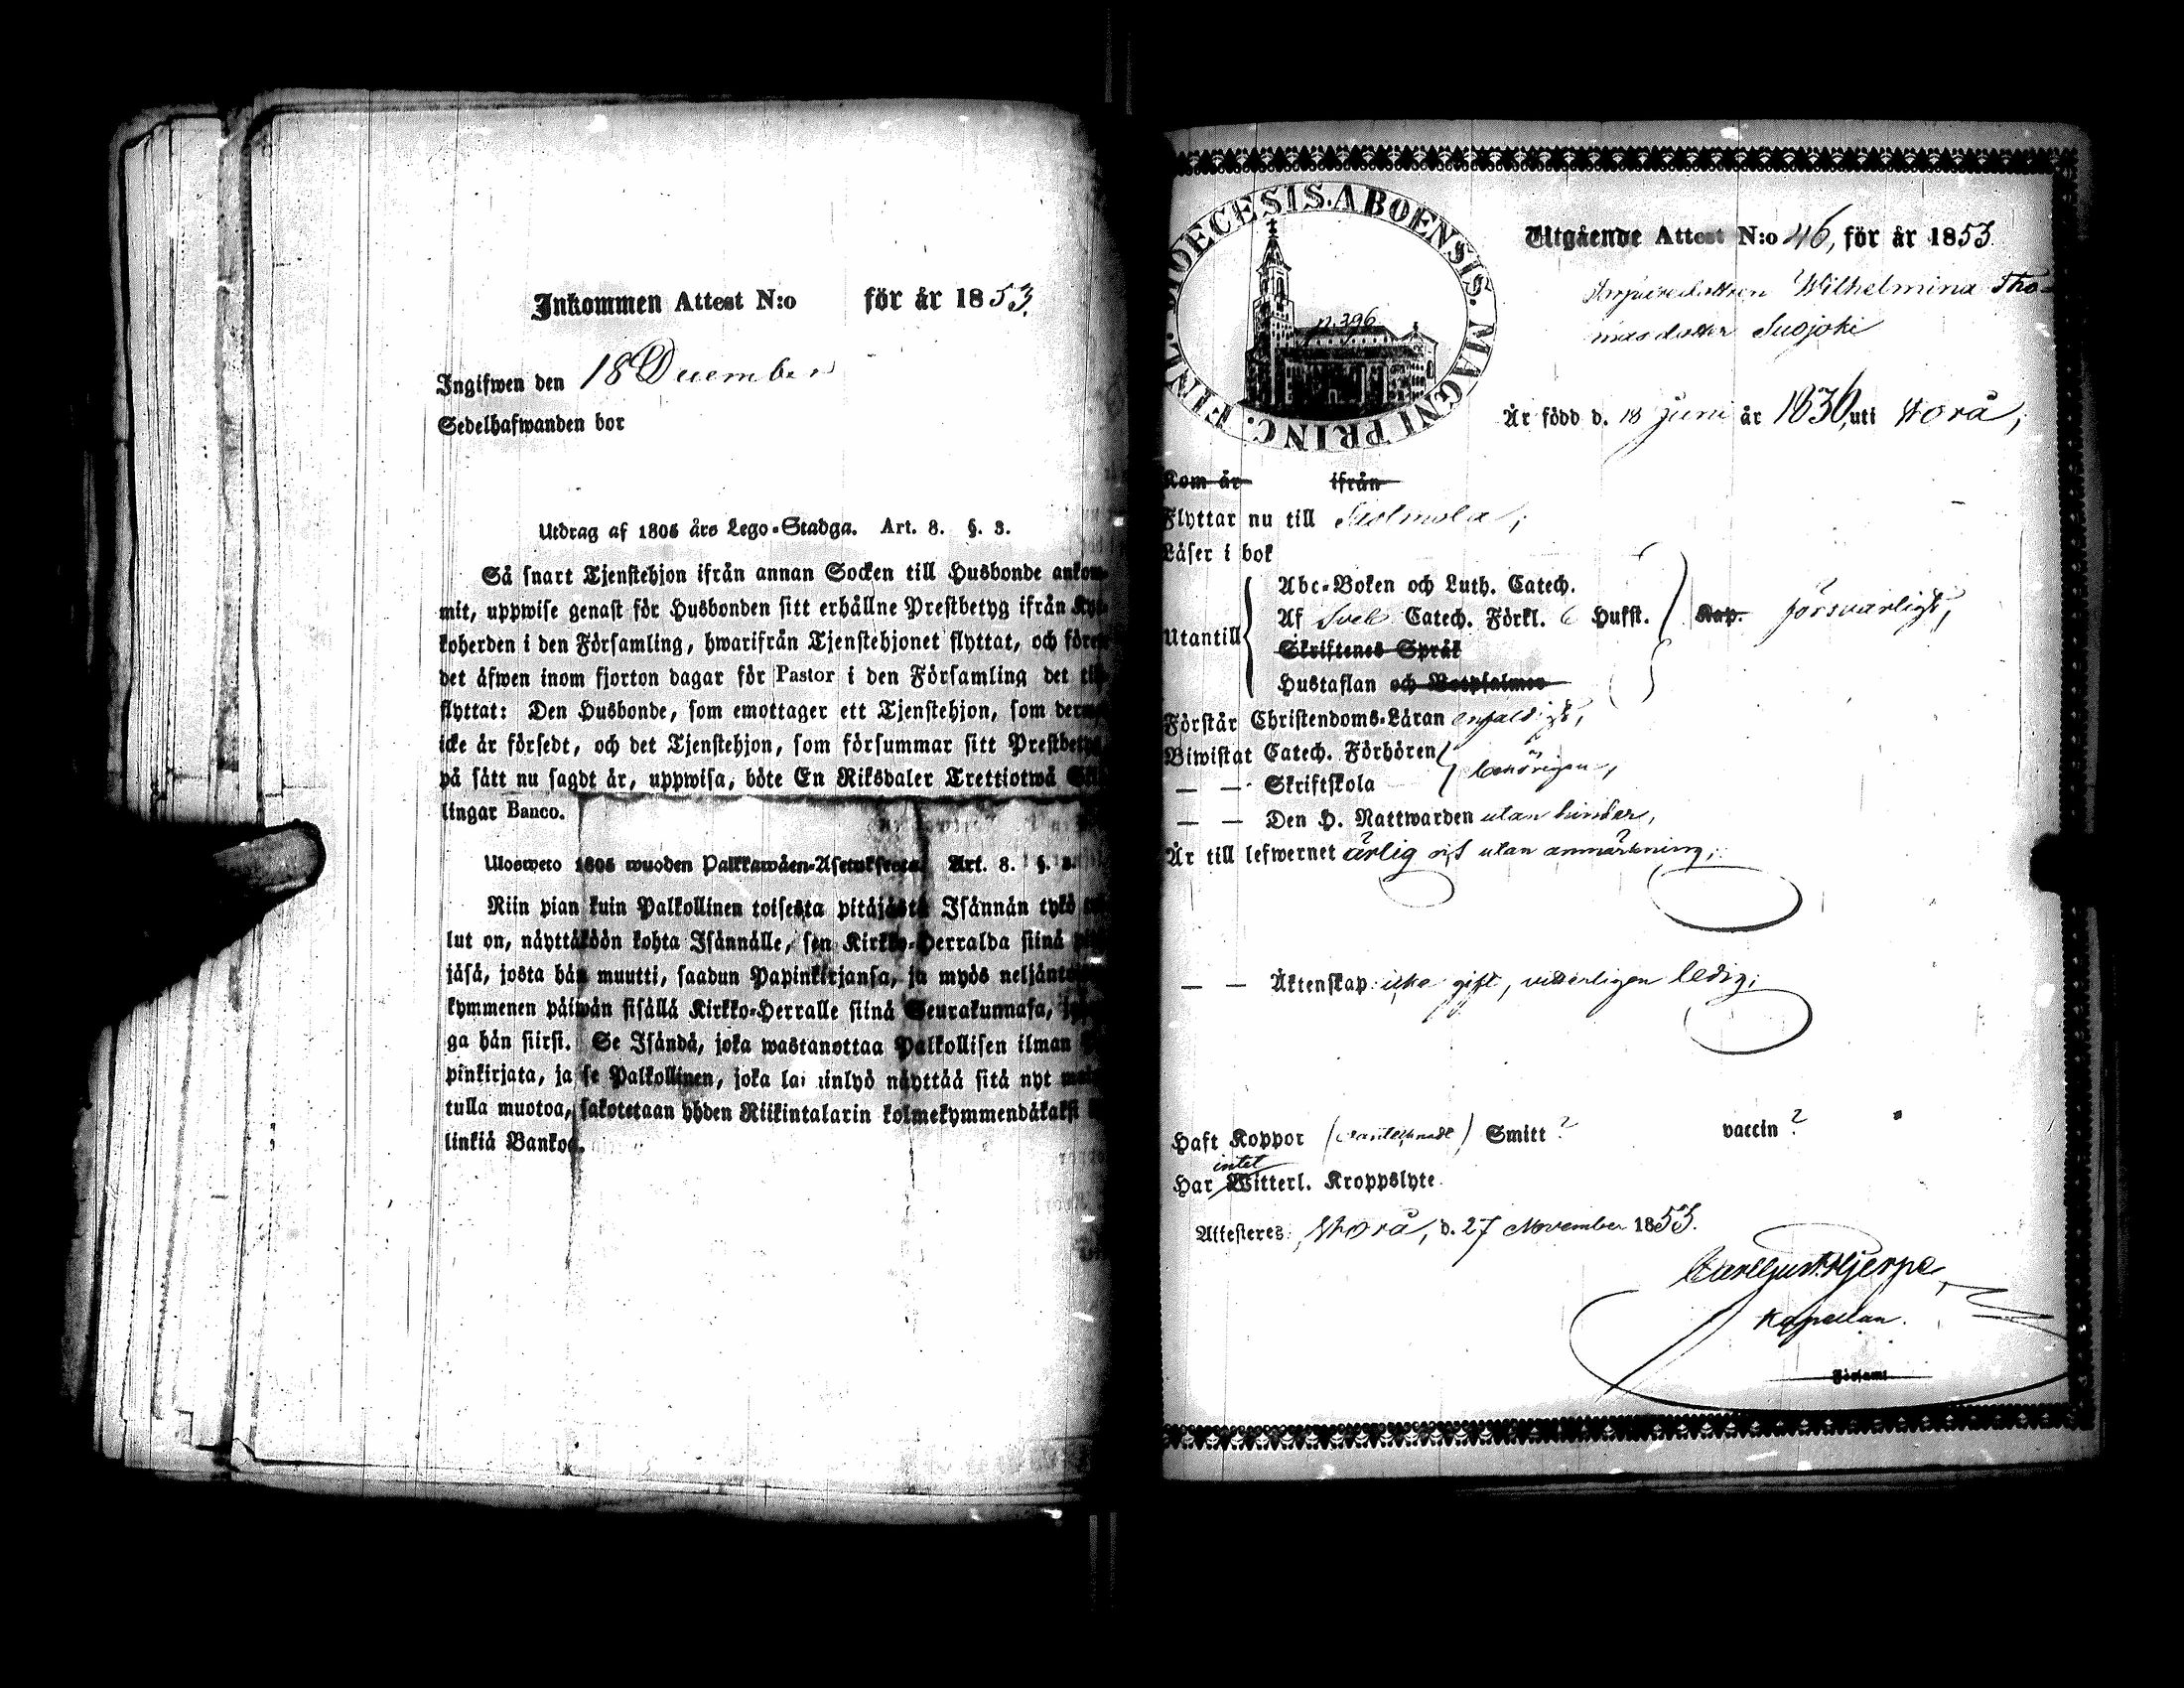 Inkommen Attest N:o för år 1853.
Ingifwen den 18 December
Sedelhafwanden bor
Utdrag af 1805 års Lego-Stadga. Art. 8. §. 3.
Så snart Tjenstehjon ifrån annan Socken till Husbonde ankom-
mit, uppwise genast för Husbonden sitt erhållne Prestbetyg ifrån Kyr-
koherden i den Församling, hwarifrån Tjenstehjonet flyttat, och förete
det äfwen inom fjorton dagar för Pastor i den Församling det till-
flyttat: Den Husbonde, som emottager ett Tjenstehjon, som dermed
icke är försedt, och det Tjenstehjon, som försummar sitt Prestbetyg
på sätt nu sagdt är, uppwisa, böte En Riksdaler Trettiotwå Skil-
lingar Banco.
Ulosweto 1805 wuoden Palkkawäen-Asetuksesta Art. 8. §.
Niin pian kuin Palkollinen toisesta pitäjästä Isännän tykö
lut on, näyttäköön kohta Isännälle, sen Kirkko-Herralda siinä
jäsä, josta hän muutti, saadun Papinkirjansa, ja myös neljäntoista
kymmenen päiwän sisällä Kirkko-Herralle siinä Seurakunnasa,
ga hän siirsi. Se Isändä, joka wastanottaa Palkollisen ilman
pinkirjata, ja se Palkollinen, joka lai minlyö näyttää sitä nyt
tulla muotoa, sakotetaan yhden Riikintalarin kolmekymmendäkaksi
linkiä Bankoa.
DIOECESIS. ABOENSIS. MAGNI PRINC. FINL.
p. 396
Utgående Attest N:o 46, för år 1853.
Wilhelmina Tho-
masdotter Suojoki
Är född d. 18 Juni år 1836, uti Worå,
Kom år ifrån
Flyttar nu till
Läser i bok
Abc-Boken och Luth. Catech.
Af Sveb Catech. Förkl. 6 Hufst. Kap. försvarligt,
Utantill
Skriftenes Språk
Hustaflan och Botpsalmer
Förstår Christendoms-Läran enfaldigt,
Biwistat Catech. Förhören
— — Skriftskola behörigen,
— — Den H. Nattwarden utan hinder,
Är till lefwernet ärlig och utan anmärkning;
— — Äktenskap: icke gift, vitterligen ledig;
Haft Koppor Smitt ? vaccin ?
intet
Har Witterl. Kroppslyte
Attesteres: Worå, d. 27 November 1853.
Carl Gust. Hjerpe
Kapellan.
Församl